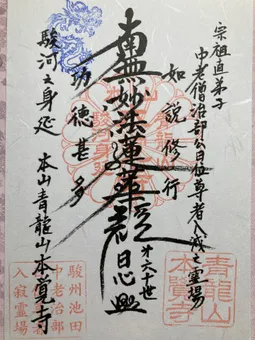 宗祖直弟子
中老僧治部公日位尊者入滅之霊場
如説修行
南無妙法蓮華経
第六十世
日心
功徳甚多
駿河之身延
本山青龍山本覚寺
青龍山
本覺寺
駿州池田
中老治部
入寂霊場